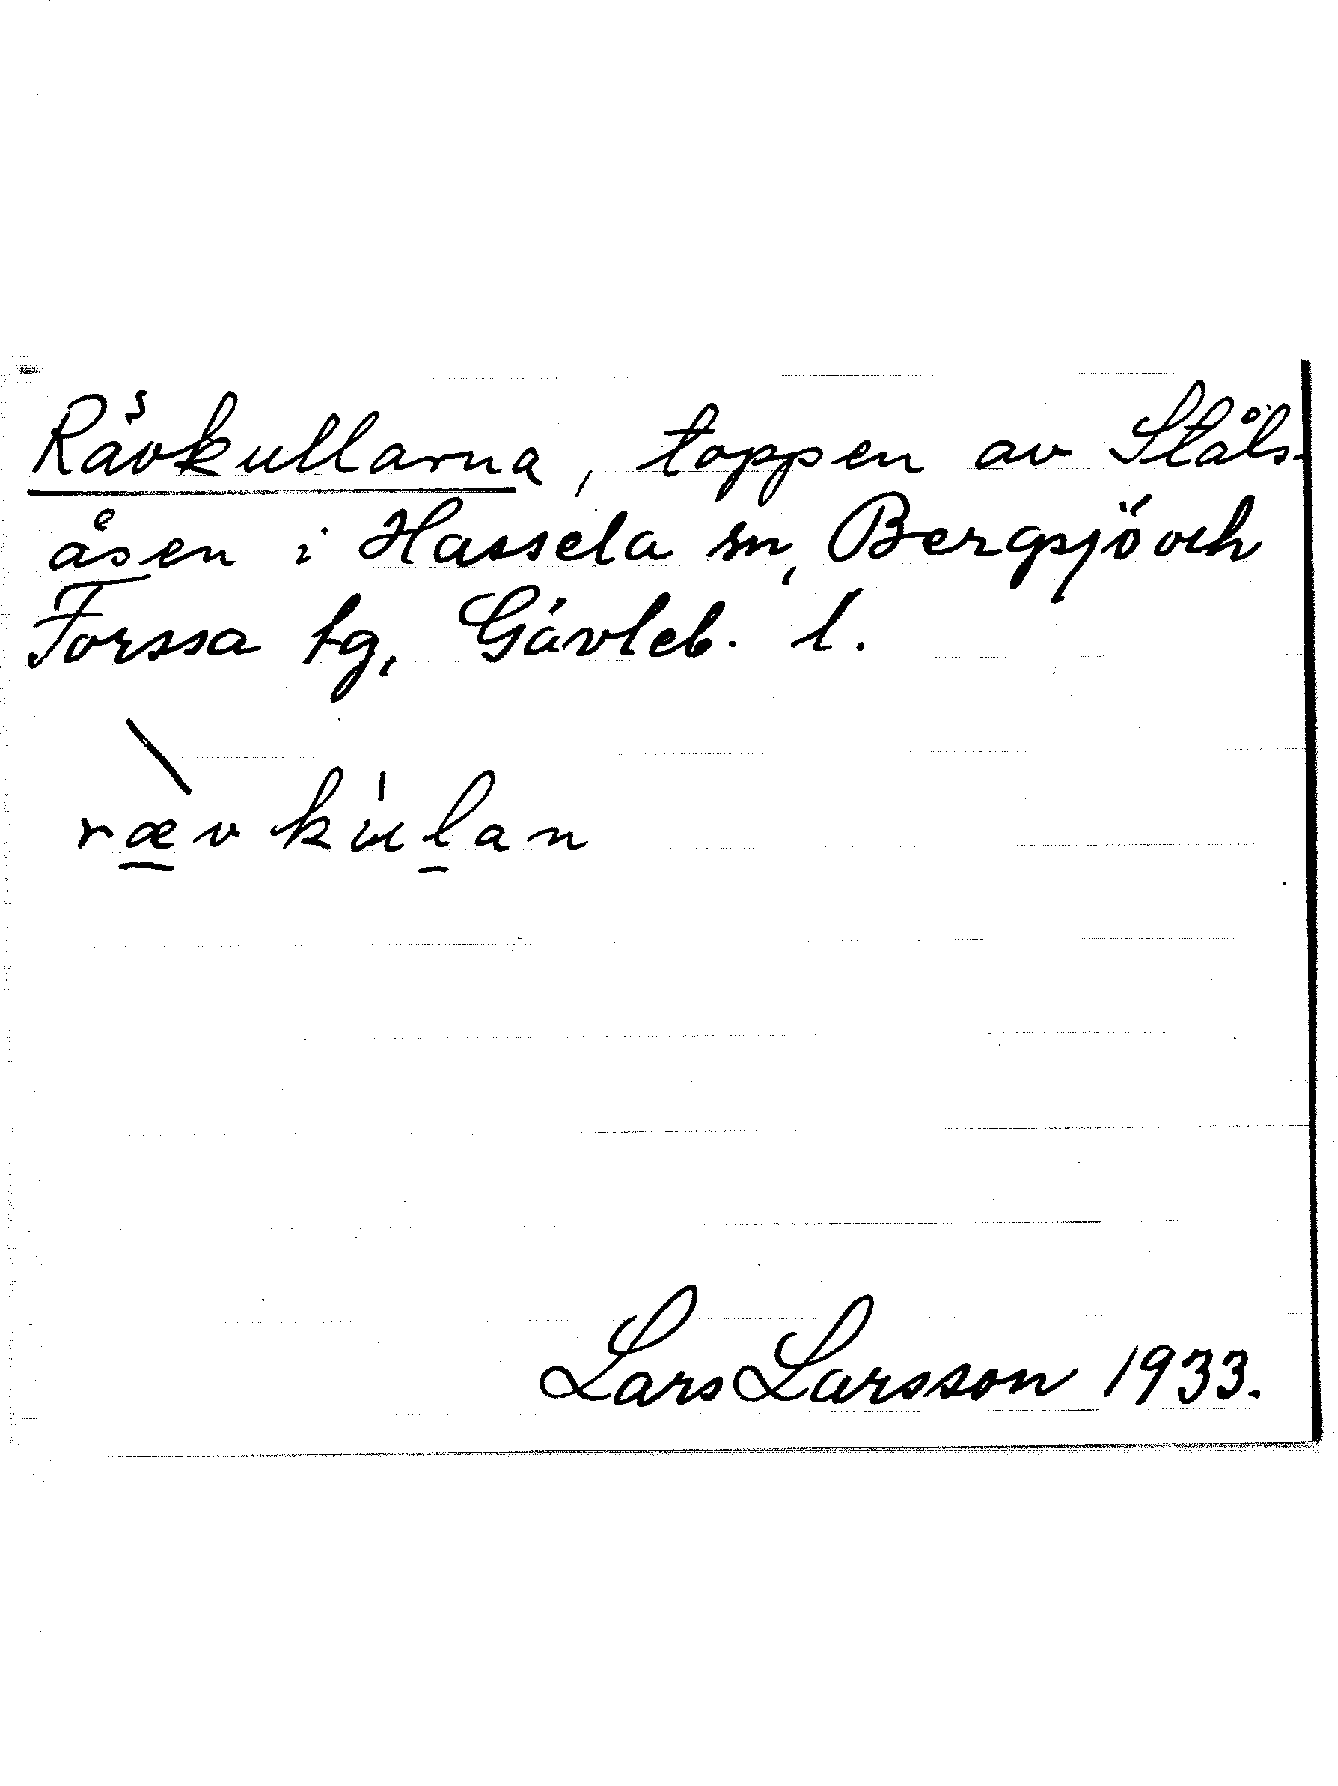 Rävkullarna, toppen av Ståls-
åsen i Hassela sn, Bergsjö och
Forssa tg, Gävleb. l.
rævkulan
Lars Larsson 1933.